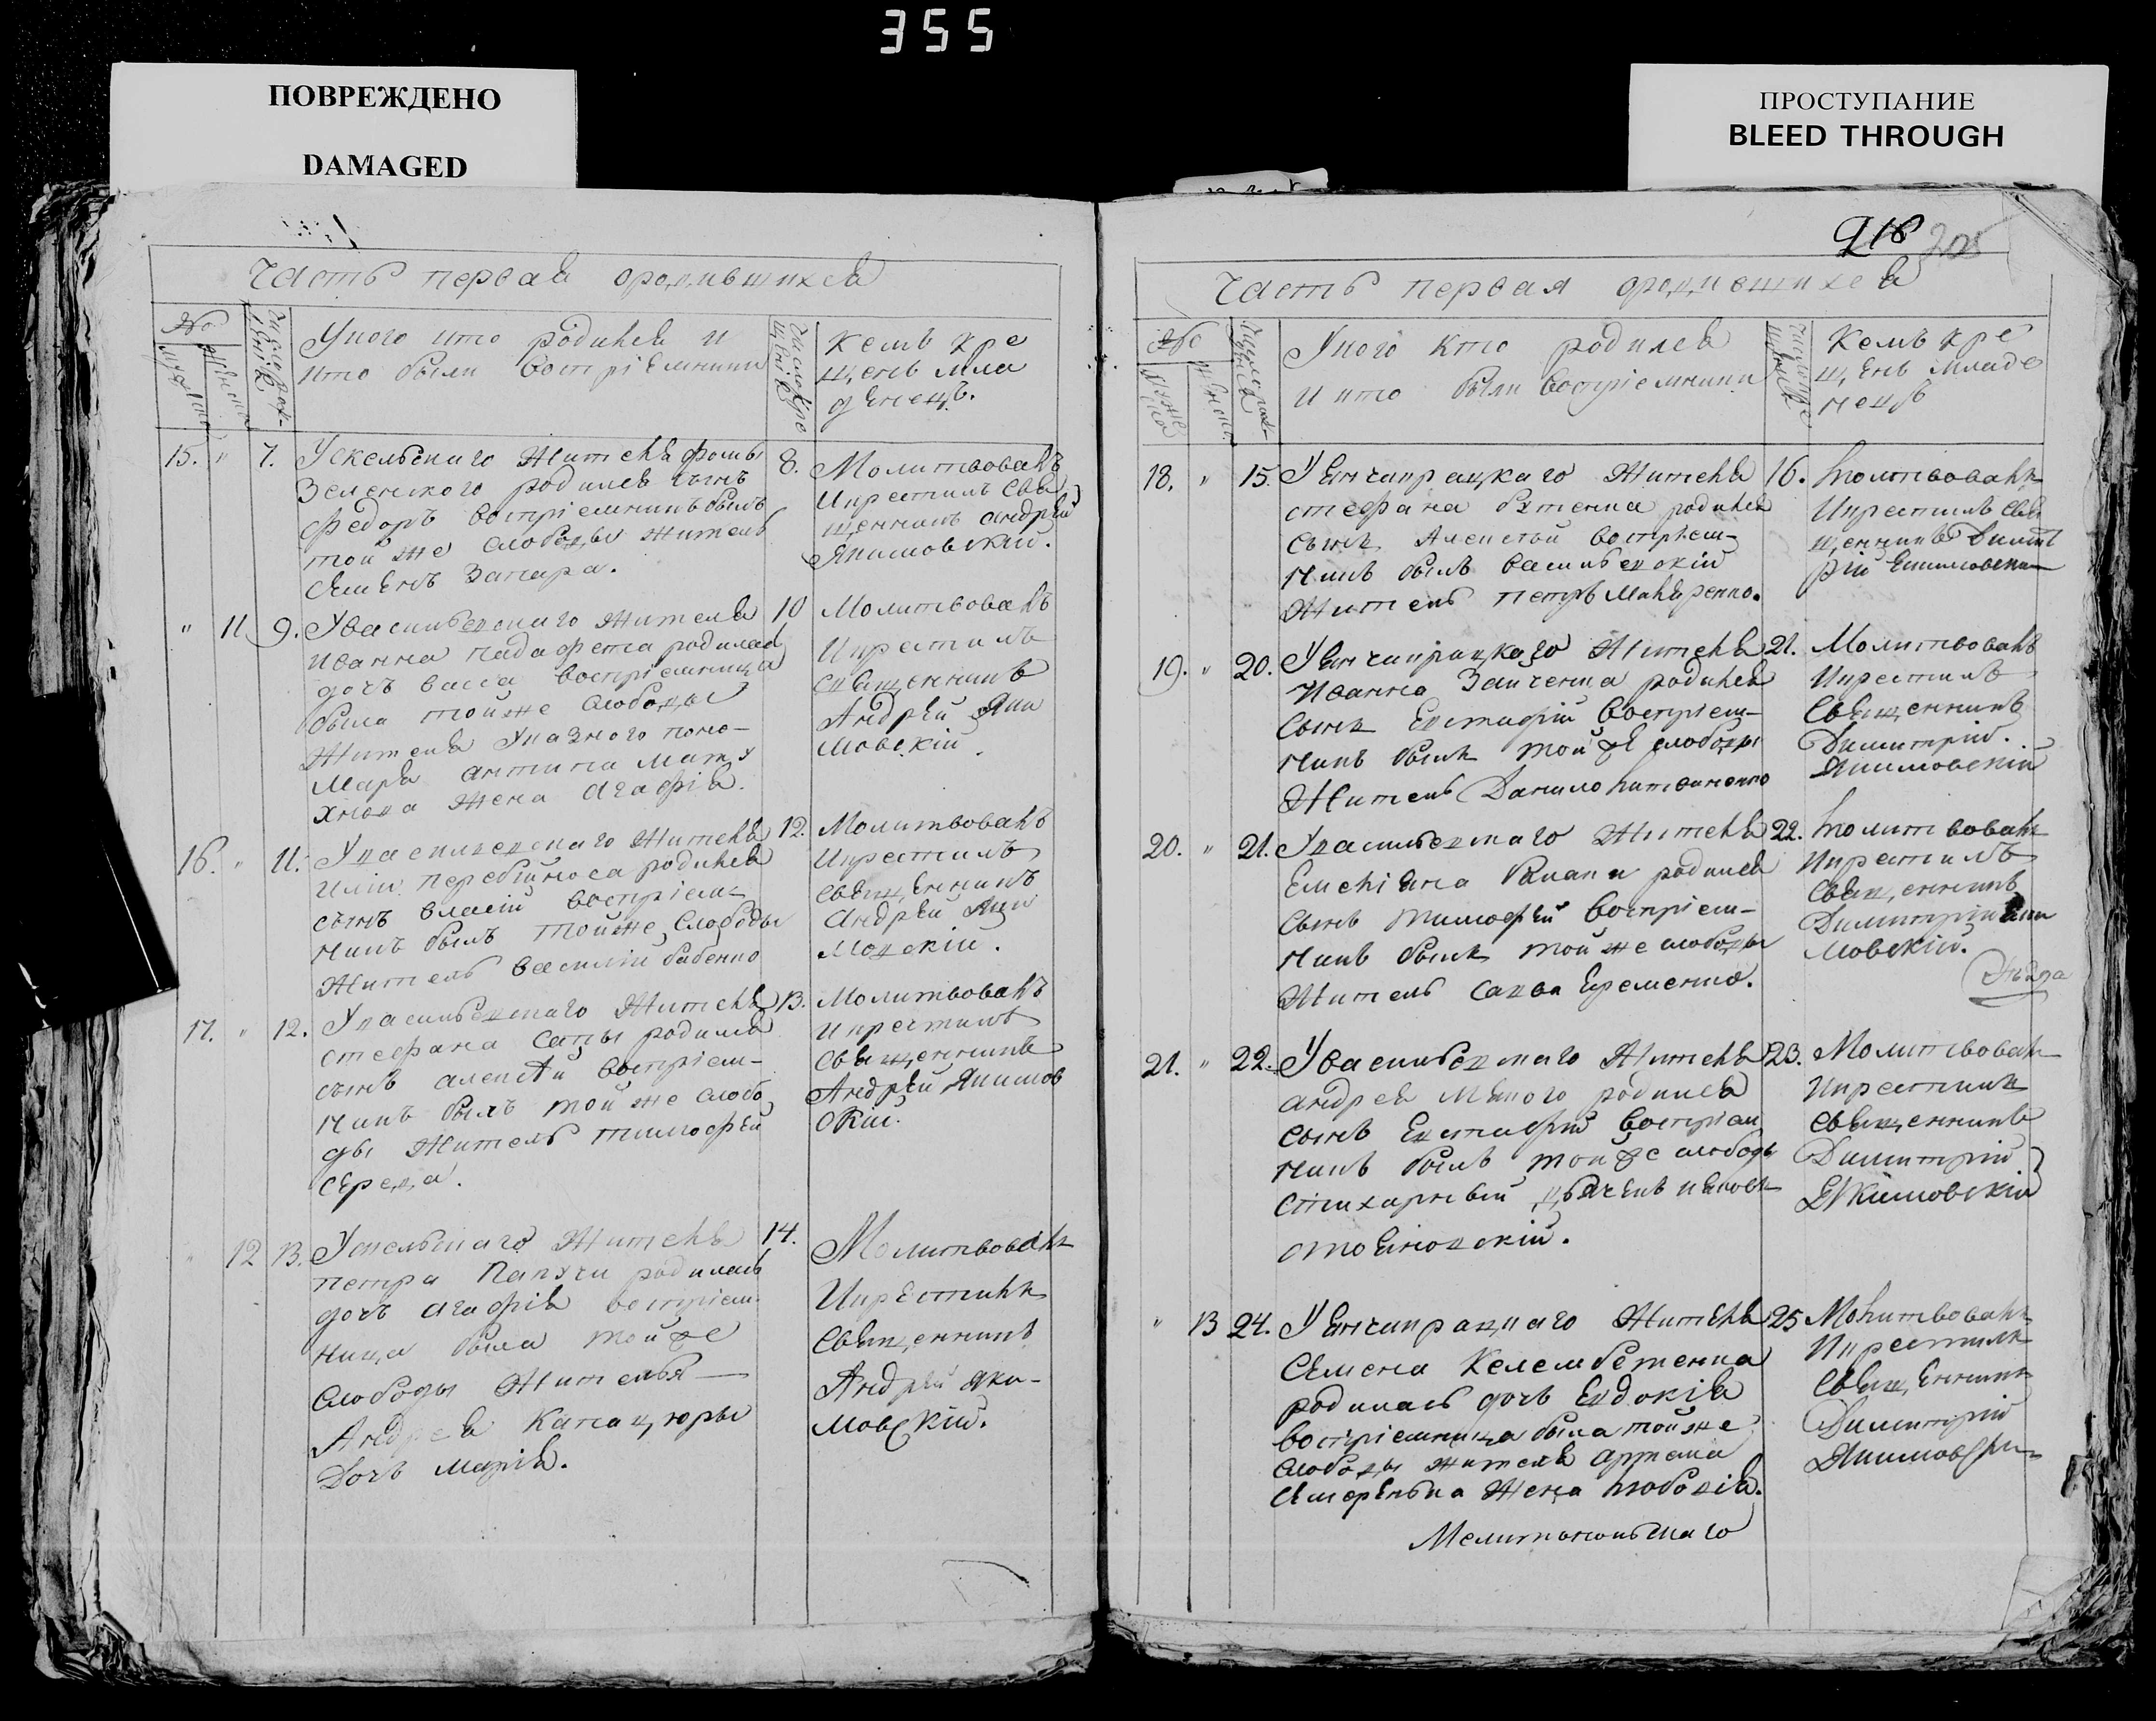 355
ПОВРЕЖДЕНО
DAMAGED
ПРОСТУПАНИЕ
BLEED THROUGH
Часть первая ородившихся
№
Уного кто родился и
кто были Воспріемники
Кемъ кре
щенъ мла
денецъ.
15. " 7. Ускельскаго Жителя фомы
Зеленского родился сынъ
федоръ воспріемникъ былъ
той же слободы житель
Семенъ Запара.
8. Молитвовалъ
Икрестилъ Свя
щенникъ андрей
Якимовскій.
" 11 9. Увасильевскаго жителя
Іванна родилась
дочь васса воспріемница
была тойже слободы
Жителя Указного поно-
маря антипа
жена Агафія.
10 Молитвовалъ
Икрестилъ
Священникъ
Андрей Яки
мовскій.
16. " 11. Увасильевскаго Жителя
Иліи перебійноса родился
сынъ власій воспріем
никъ былъ тойже слободы
Житель василій бабенко
12. Молитвовалъ
Икрестилъ
Священникъ
Андрей Яки
мовскій.
17. " 12. Увасильевскаго Жителя
стефана Сапы родился
сынъ алексѣй воспріем-
никъ былъ той же слобо
ды Житель тимофей
середа.
13. Молитвовалъ
икрестилъ
Священникъ
Андрей Якимов
скій.
" 12 13. Ускельскаго Жителя
петра родилась
дочь агафія воспріем
ница была той же
слободы Жителя
Андрея
Дочь марія.
14. Молитвовалъ
Икрестилъ
Священникъ
Андрей Яки-
мовскій.
218
Часть первая ородившихся
№
Уного кто родился
и кто были Воспріемники
Кемъ кре
щенъ младе
нецъ
18. " 15. Уянчикрацкаго Жителя
стефана родился
сынъ Алексѣй воспріем-
никъ былъ васильевскій
Житель петръ Макаренко.
16. молитвовалъ
Икрестилъ Свя
щенникъ Димит
рій
19. " 20. Уянчикрацкаго Жителя
Іванна Заиченка родился
сынъ Евстафій воспріем-
никъ былъ той же слободы
Житель Данило
21. Молитвовалъ
Икрестилъ
Священникъ
Димитрій.
Якимовскій
20. " 21. Увасильевскаго Жителя
Емеліяна родился
сынъ тимофѣй воспріем-
никъ былъ той же слободы
Житель савва Еременко.
22. молитвовалъ
Икрестилъ
Священникъ
Димитрій Яки
мовскій.
21. " 22. Увасильевскаго Жителя
андрея родился
сынъ Евстафій воспріем
никъ былъ той же слободы
стихарный дьячекъ
23. Молитвовалъ
Икрестилъ
Священникъ
Димитрій
Якимовскій
" 13 24. Уянчикрацкаго Жителя
Семена Келембетенка
родилась дочь Евдокія
воспріемница была той же
слободы жителя артема
жена
25 Молитвовалъ
Икрестилъ
Священникъ
Димитрій
Мелитопольскаго